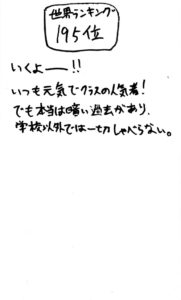 世界ランキング
195位
いくよー!!
いつも元気でクラスの人気者!
でも本当は暗い過去があり、
学校以外では一切しゃべらない。